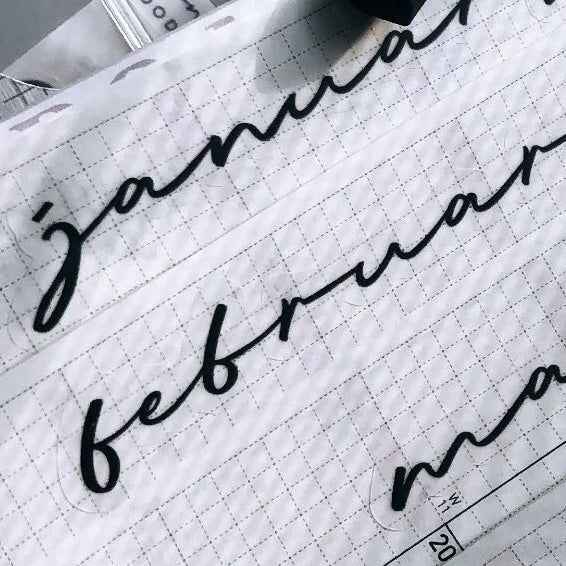 januar
februar
ma
W
11
20